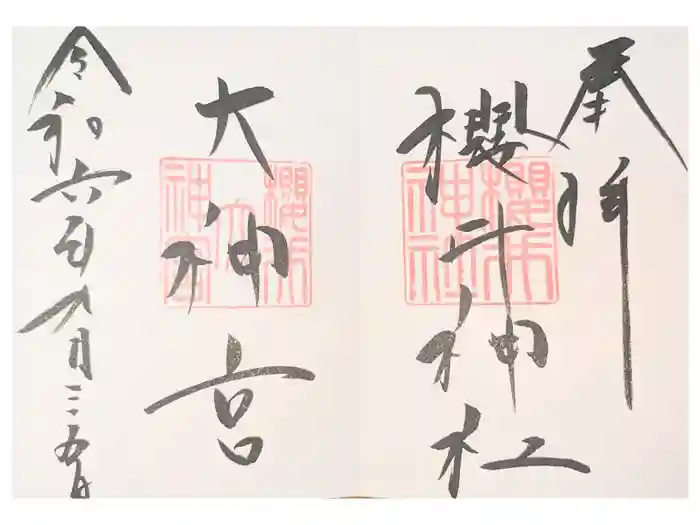 奉拝
櫻井神社
櫻井神社
大神宮
櫻井大神宮
令和六年九月